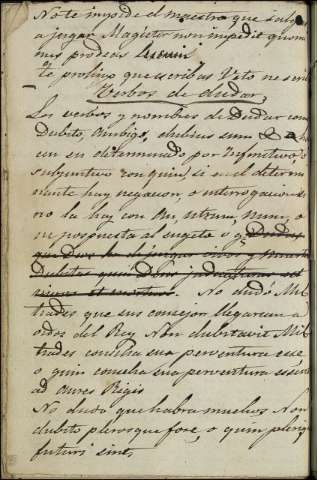 No te impide el maestro que salgas
a jugar Magister non impedit quomi
nus prodeas
te prohivo que escribas Veto ne scrib
Verbos de dudar
Los verbos y nombres de Dudar como
Dubito, Ambigo, dubius sum
un su determinado por Infinitivo o
subjuntivo con quin, si en el determi
nante hay negacion, o interrogacion si
no la hay con An, utrum, num, o
ne pospuesta al sugeto o
No dudó Mil
ciades que sus consejos llegarian a
oidos del Rey Non dubitavit Mil
tiades consilia sua perventura esse,
o quin consilia sua perventura essent
ad aures Regis
No dudo que habra muchos Non
dubito plerosque fore, o quin pleriq
futuri sint,